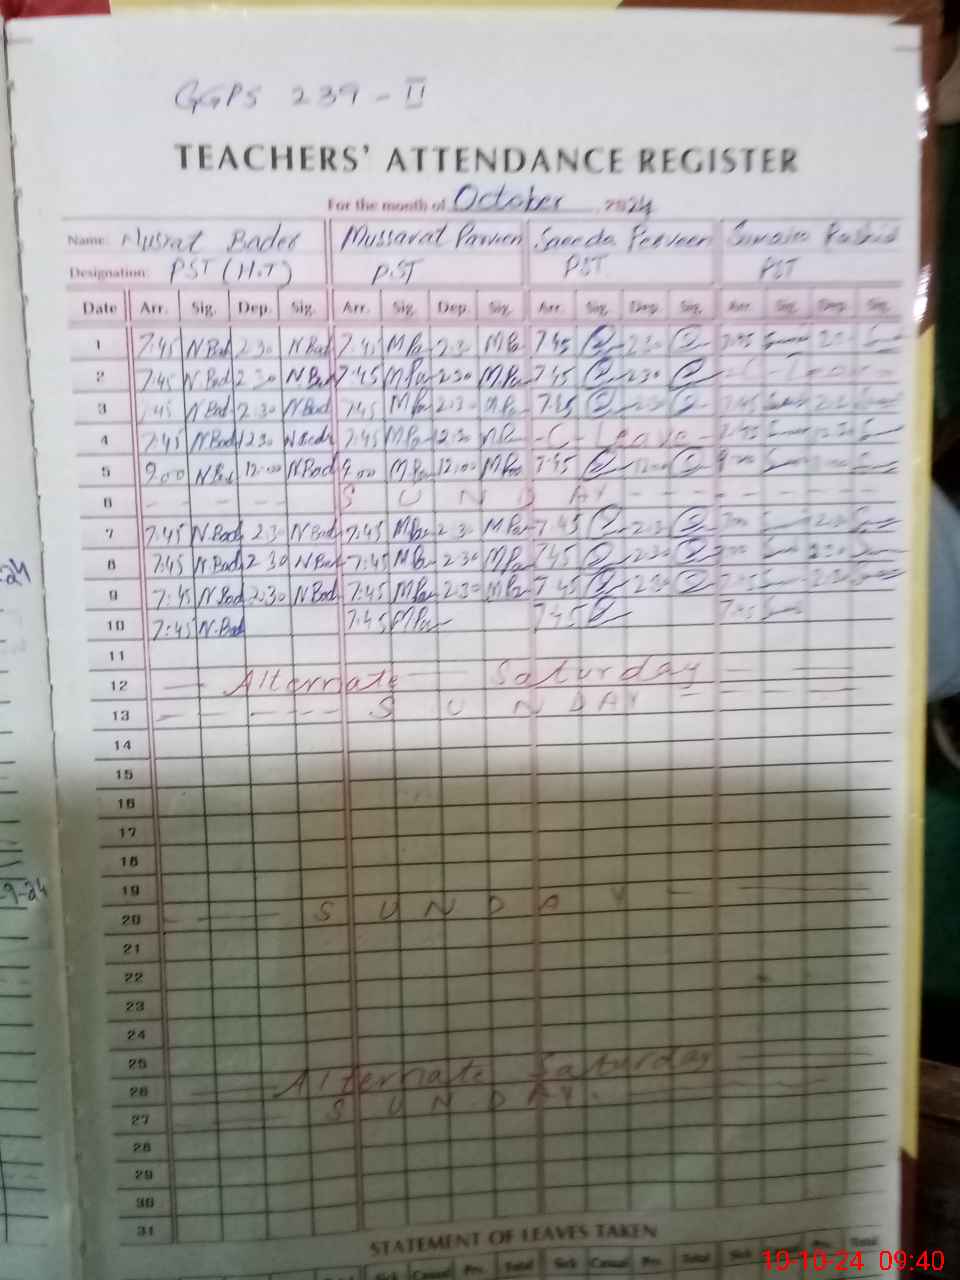 GGPS 239-II
TEACHERS' ATTENDANCE REGISTER
For the month of October 2024
Name: Nusrat Bader Mussarat Parveen Saeeda Perveen Sumaira Rashid
Designation: PST (H.T) PST PST PST
Date Arr. Sig. Dep. Sig. Arr. Sig. Dep. Sig. Arr. Sig. Dep. Sig. Arr. Sig. Dep. Sig.
1 7:45 N.Bad 2:30 N.Bad 7:45 MPa 2:30 MPa 7:45 2:30 7:45
2 7:45 N.Bad 2:30 N.Bad 7:45 MPa 2:30 MPa 7:45 2:30
3 7:45 N.Bad 2:30 N.Bad 7:45 MPa 2:30 MPa 7:45 2:30 7:45 2:30
4 7:45 N.Bad 12:30 N.Bad 7:45 MPa 12:30 MPa - C - Leave - 7:45 12:30
5 9:00 N.Bad 12:00 N.Bad 9:00 MPa 12:00 MPa 7:45 12:00 9:00
6 - - - - S U N D A Y - - - -
7 7:45 N.Bad 2:30 N.Bad 7:45 MPa 2:30 MPa 7:45 2:30 2:30
8 7:45 N.Bad 2:30 N.Bad 7:45 MPa 2:30 MPa 7:45 2:30 2:30
9 7:45 N.Bad 2:30 N.Bad 7:45 MPa 2:30 MPa 7:45 2:30 7:45 2:30
10 7:45 N.Bad 7:45 MPa 7:45 7:45
11
12 Alternate Saturday
13 - - - - S U N D A Y - - -
14
15
16
17
18
19
20 S U N D A Y
21
22
23
24
25
26 Alternate Saturday
27 S U N D A Y
28
29
30
31
STATEMENT OF LEAVES TAKEN
Sick Casual Prv. Total Sick Casual Prv. Total Sick Casual Prv. Total
24
9-24
10-10-24 09:40